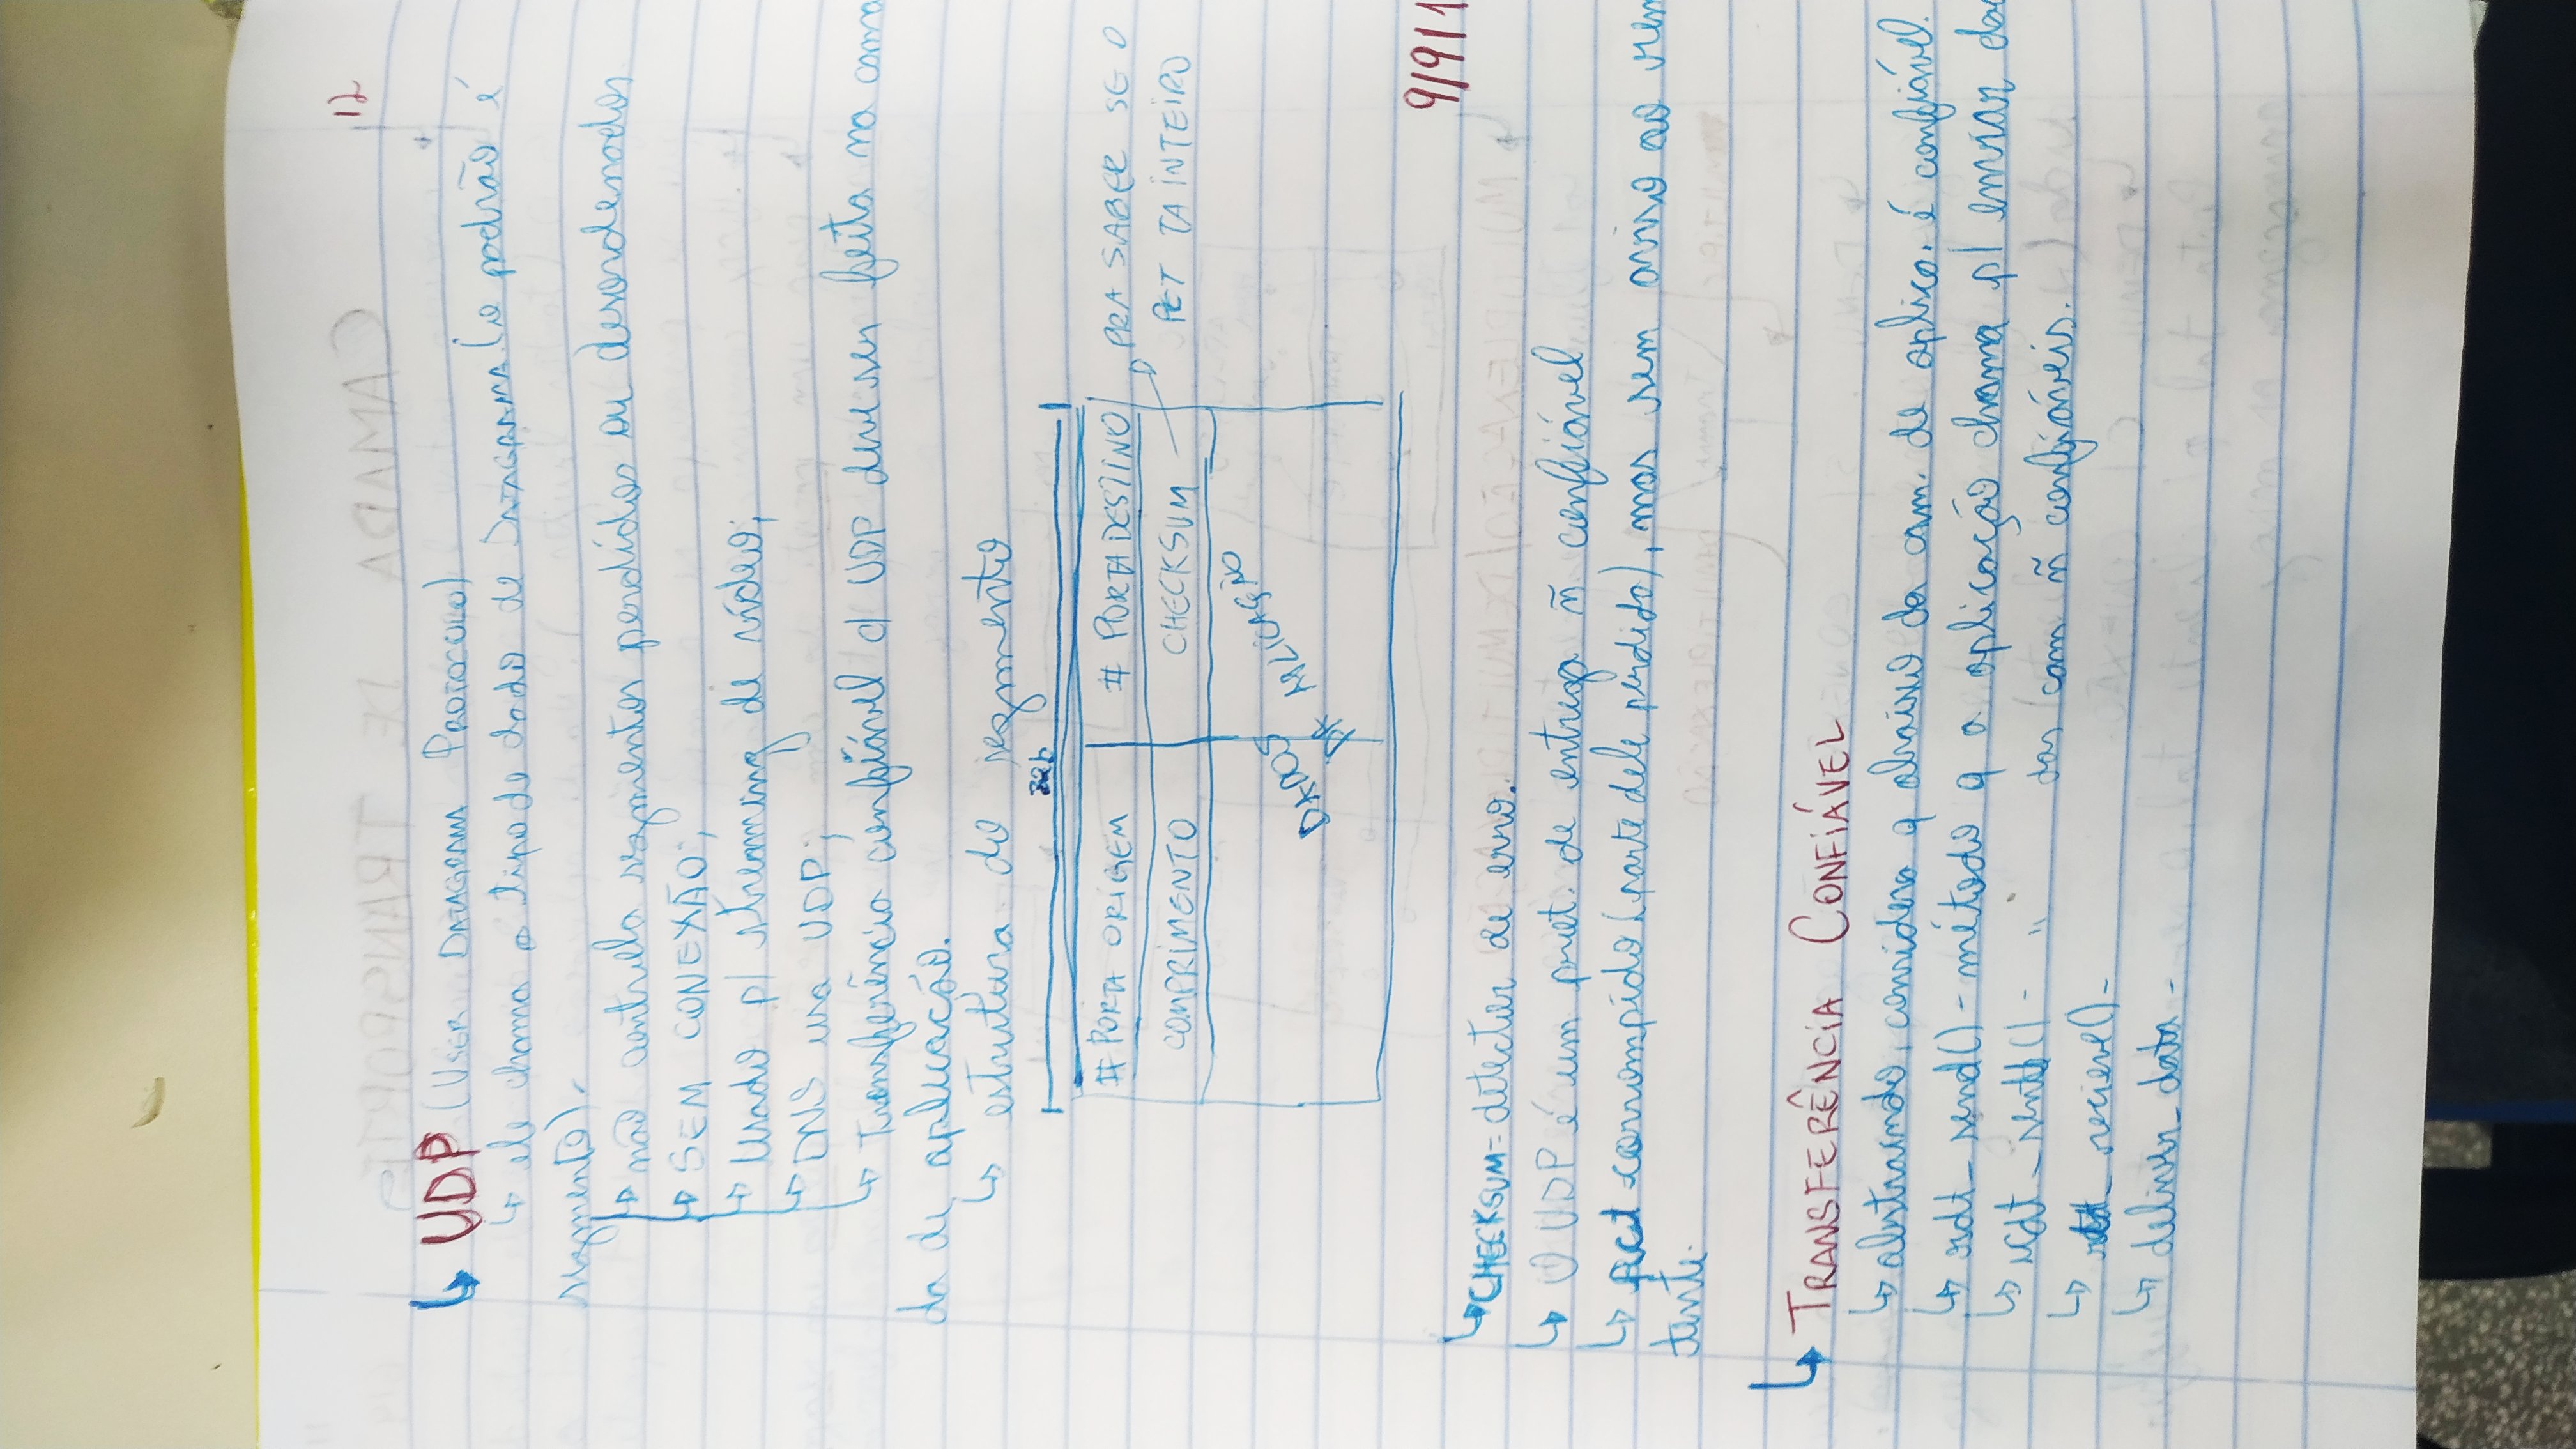 12
↳ UDP (USER DATAGRAMA PROTOCOLO)
↳ ele chama o tipo de dado de DATAGRAMA (o padrão é
segmento).
↳ não controla segmentos perdidos ou desordenados
↳ SEM CONEXÃO;
↳ Usado p/ streaming de vídeo;
↳ DNS usa UDP;
↳ Transferência confiável c/ UDP deve ser feita na cama
da de aplicação.
↳ estrutura do segmento
32b
# PORTA ORIGEM # PORTA DESTINO PRA SABER SE O
COMPRIMENTO CHECKSUM → PCT TA INTEIRO
DADOS
DA APLICAÇÃO
9/9/1
↳ CHECKSUM = detector de erro.
↳ O UDP é um prot. de entrega ñ confiável
↳ pct corrompido (parte dele perdido), mas sem aviso ao reme
tente.
↳ TRANSFERÊNCIA CONFIÁVEL
↳ abstraindo, considera q abaixo da cam. de aplica. é confiável.
↳ rdt_send() - método q a aplicação chama p/ enviar da
↳ udt_send() - " das cam ñ confiáveis.
↳ rdt_recieve() -
↳ deliver_data -